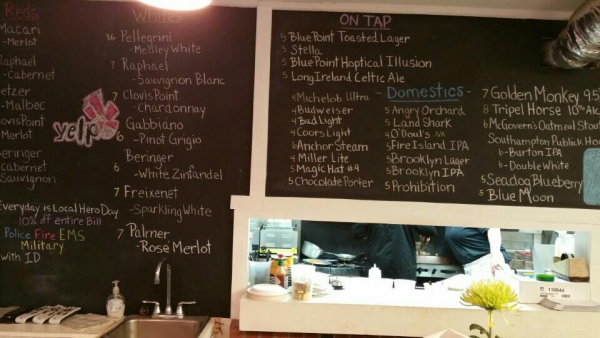 Reds
Macari
-Merlot
Raphael
-Cabernet
etzer
-Malbec
ClovisPoint
Merlot
Beringer
cabernet
Sauvignon
Everyday is Local Hero Day
10% off entire Bill
Police Fire EMS
Military
with ID
yelp
Whites
36 Pellegrini
-Medley White
7 Raphael
-Sauvignon Blanc
7 Clovis Point
-Chardonnay
6 Gabbiano
-Pinot Grigio
Beringer
6 -White Zinfandel
7 Freixenet
-Sparkling White
7 Palmer
-Rosé Merlot
ON TAP
5 Blue Point Toasted Lager
5 Stella
5 Blue Point Hoptical Illusion
5 Long Ireland Celtic Ale
-Domestics-
4 Michelob Ultra
4 Budweiser
4 Bud Light
4 Coors Light
6 Anchor Steam
4 Miller Lite
5 Magic Hat #9
5 Chocolate Porter
5 Angry Orchard
5 Land Shark
4 O'Doul's NA
5 Fire Island IPA
5 Brooklyn Lager
5 Brooklyn IPA
5 Prohibition
7 Golden Monkey 9.5
8 Tripel Horse 10% Alc
6 McGovern's Oatmeal Stout
Southampton Publick Hou
6-Burton IPA
6-Double White
5 Seadog Blueberry
5 Blue Moon